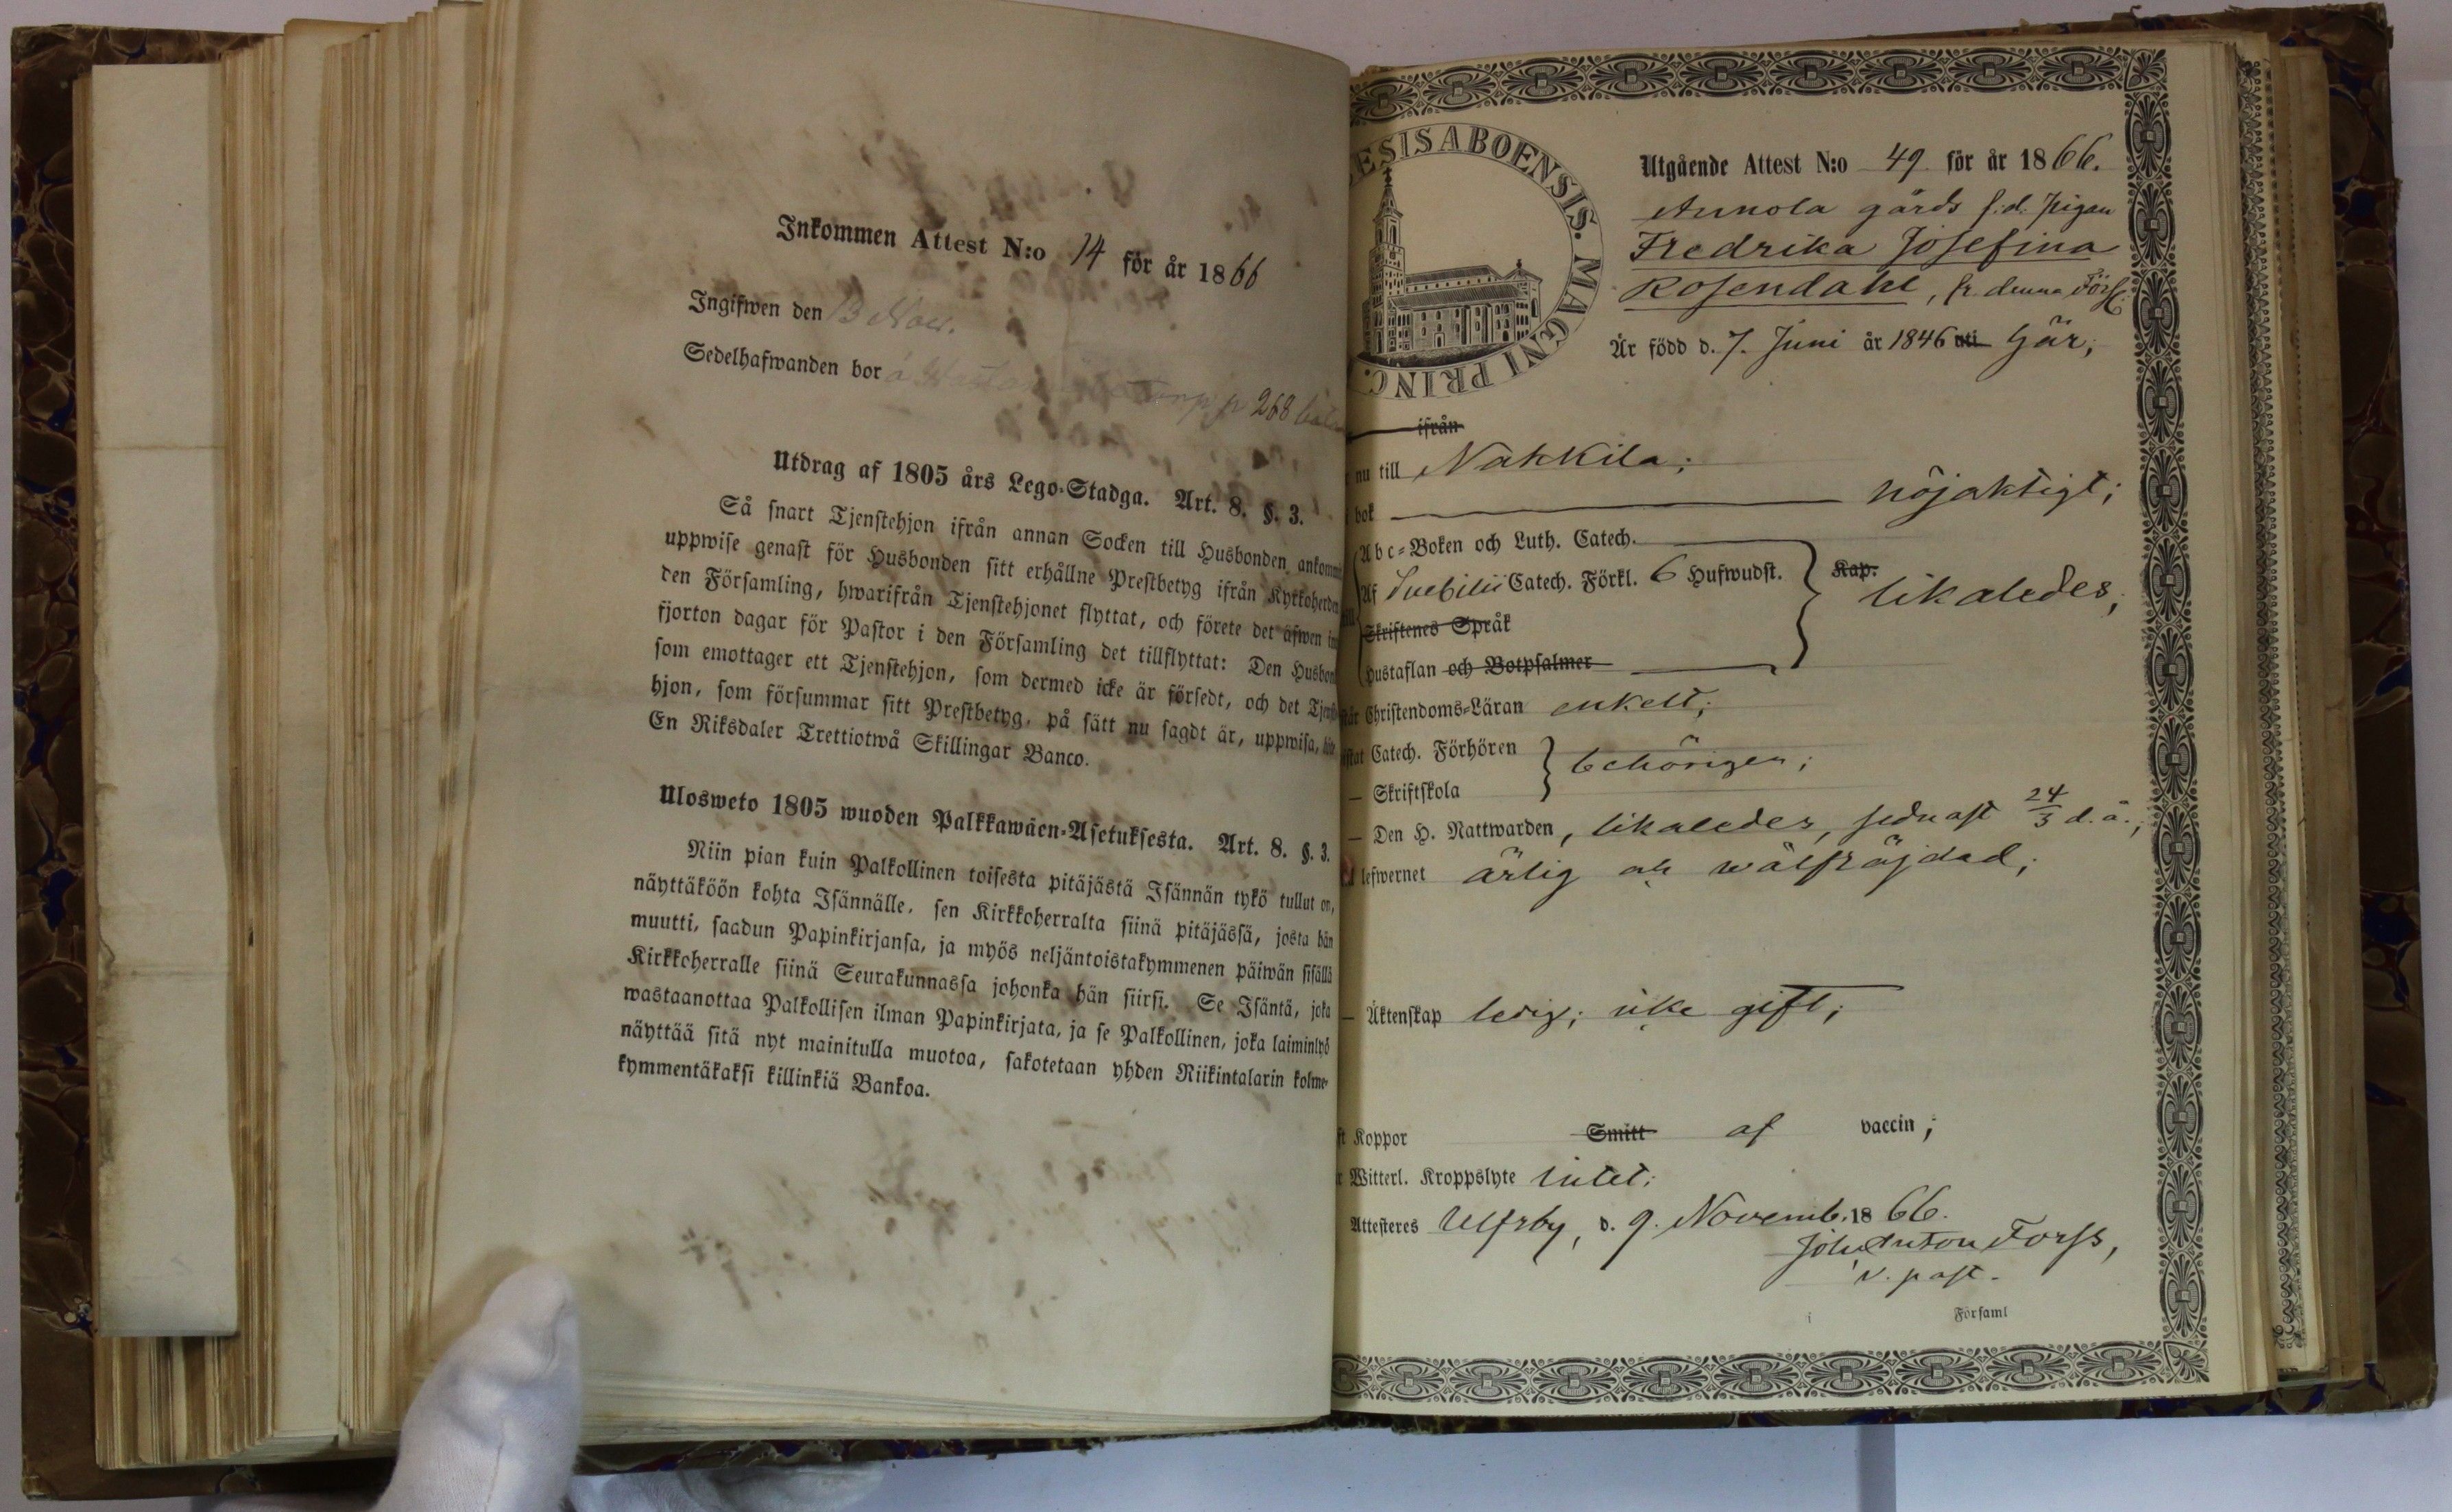 Inkommen Attest N:o 14 för år 1866
Ingifwen den 13 Nov.
Sedelhafwanden bor å p 268
Utdrag af 1805 års Lego-Stadga. Art. 8. §. 3.
Så snart Tjenstehjon ifrån annan Socken till Husbonden ankommit
uppwise genast för Husbonden sitt erhållne Prestbetyg ifrån Kyrkoherden
den Församling, hwarifrån Tjenstehjonet flyttat, och förete det äfwen in
fjorton dagar för Pastor i den Församling det tillflyttat: Den Husbon
som emottager ett Tjenstehjon, som dermed icke är försedt, och det Tjenste
hjon, som försummar sitt Prestbetyg, på sätt nu sagdt är, uppwisa, böte
En Riksdaler Trettiotwå Skillingar Banco.
Ulosweto 1805 wuoden Palkkawäen-Asetuksesta. Art. 8. §. 3.
Niin pian kuin Palkollinen toisesta pitäjästä Isännän tykö tullut on,
näyttäköön kohta Isännälle, sen Kirkkoherralta siinä pitäjässä, josta hän
muutti, saadun Papinkirjansa, ja myös neljäntoistakymmenen päiwän sisällä
Kirkkoherralle siinä Seurakunnassa johonka hän siirsi. Se Isäntä, joka
wastaanottaa Palkollisen ilman Papinkirjata, ja se Palkollinen, joka laiminlyö
näyttää sitä nyt mainitulla muotoa, sakotetaan yhden Riikintalarin kolme-
kymmentäkaksi killinkiä Bankoa.
ESIS ABOENSIS. MAGNI PRINC.
Utgående Attest N:o 49 för år 1866.
Annola gårds f.d. pigan
Fredrika Josefina
Rosendahl, fr. denna Förs.
Är född d. 7. Juni år 1846 uti här;
ifrån
nu till Nakkila;
bok nöjaktigt;
Abc-Boken och Luth. Catech.
Af Svebilii Catech. Förkl. 6 Hufwudst. Kap. likaledes;
Skriftenes Språk
Hustaflan och Botpsalmer
står Christendoms-Läran enkelt;
Catech. Förhören behörigen;
— Skriftskola
— Den H. Nattwarden, likaledes, sednast 24/3 d. å.;
lefwernet ärlig och wälfräjdad;
— Äktenskap ledig; icke gift;
Koppor Smitt af vaccin;
Witterl. Kroppslyte intet;
Attesteras Ulfsby, d. 9. Novemb. 1866.
Joh. Anton Forss,
v. past.
Församl